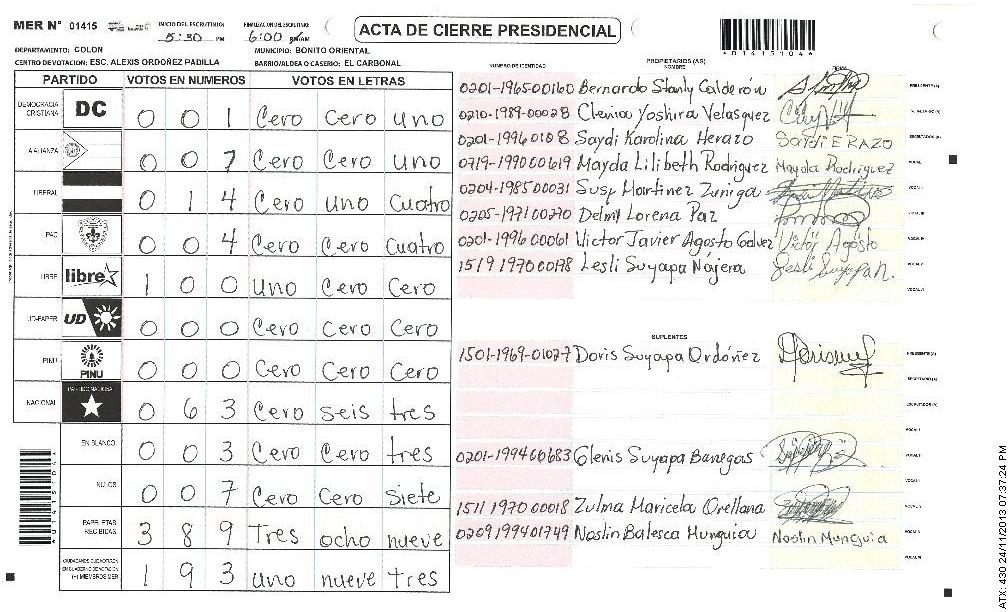 MER N° 01415 INICIO DEL ESCRUTINIO: 5:30 PM FINALIZACION DEL ESCRUTINIO: 6:00 PM/AM
ACTA DE CIERRE PRESIDENCIAL
*01415104*
DEPARTAMENTO: COLON MUNICIPIO: BONITO ORIENTAL
CENTRO DE VOTACION: ESC. ALEXIS ORDOÑEZ PADILLA BARRIO/ALDEA O CASERIO: EL CARBONAL
PARTIDO VOTOS EN NUMEROS VOTOS EN LETRAS
DEMOCRACIA CRISTIANA DC 0 0 1 Cero Cero uno
ALIANZA 0 0 7 Cero Cero uno
LIBERAL 0 1 4 Cero uno cuatro
PAC 0 0 4 Cero Cero cuatro
LIBRE libre 1 0 0 uno Cero Cero
UD-FAPER UD 0 0 0 Cero Cero Cero
PINU PINU 0 0 0 Cero Cero Cero
NACIONAL PARTIDO NACIONAL 0 6 3 Cero seis tres
EN BLANCO 0 0 3 Cero Cero tres
NULOS 0 0 7 Cero Cero siete
PAPELETAS RECIBIDAS 3 8 9 Tres ocho nueve
CIUDADANOS QUE VOTARON EN CUADERNO DE VOTACION (+) MIEMBROS MER 1 9 3 uno nueve tres
PROPIETARIOS (AS)
NUMERO DE IDENTIDAD NOMBRE FIRMA
0201-1965-00160 Bernardo Stanly Calderón PRESIDENTE (A)
0210-1989-00028 Clenioa Yoshira Velasquez SECRETARIO (A)
0201-1996 0108 Saydi Karolina Herazo Saydi ERAZO ESCRUTADOR (A)
0719-1990 00619 Mayda Lilibeth Rodriguez Mayda Rodriguez VOCAL I
0204-1985 00031 Susy Martinez Zuniga VOCAL II
0205-1971 00270 Delmy Lorena Paz VOCAL III
0201-1996 00061 Victor Javier Agosto Galvez Victor Agosto VOCAL IV
1519 1970 00198 Lesli Suyapa Nájera Lesli Suyapa N. VOCAL V
VOCAL VI
SUPLENTES
1501-1969-01027 Doris Suyapa Ordóñez PRESIDENTE (A)
SECRETARIO (A)
ESCRUTADOR (A)
VOCAL I
0201-1994 00683 Glenis Suyapa Banegas VOCAL II
VOCAL III
1511 1970 00018 Zulma Maricela Orellana VOCAL IV
0209 1994 01749 Noslin Balesca Munguia Noslin Munguia VOCAL V
VOCAL VI
*01415104*
ATX: 430 24/11/2013 07:37:24 PM